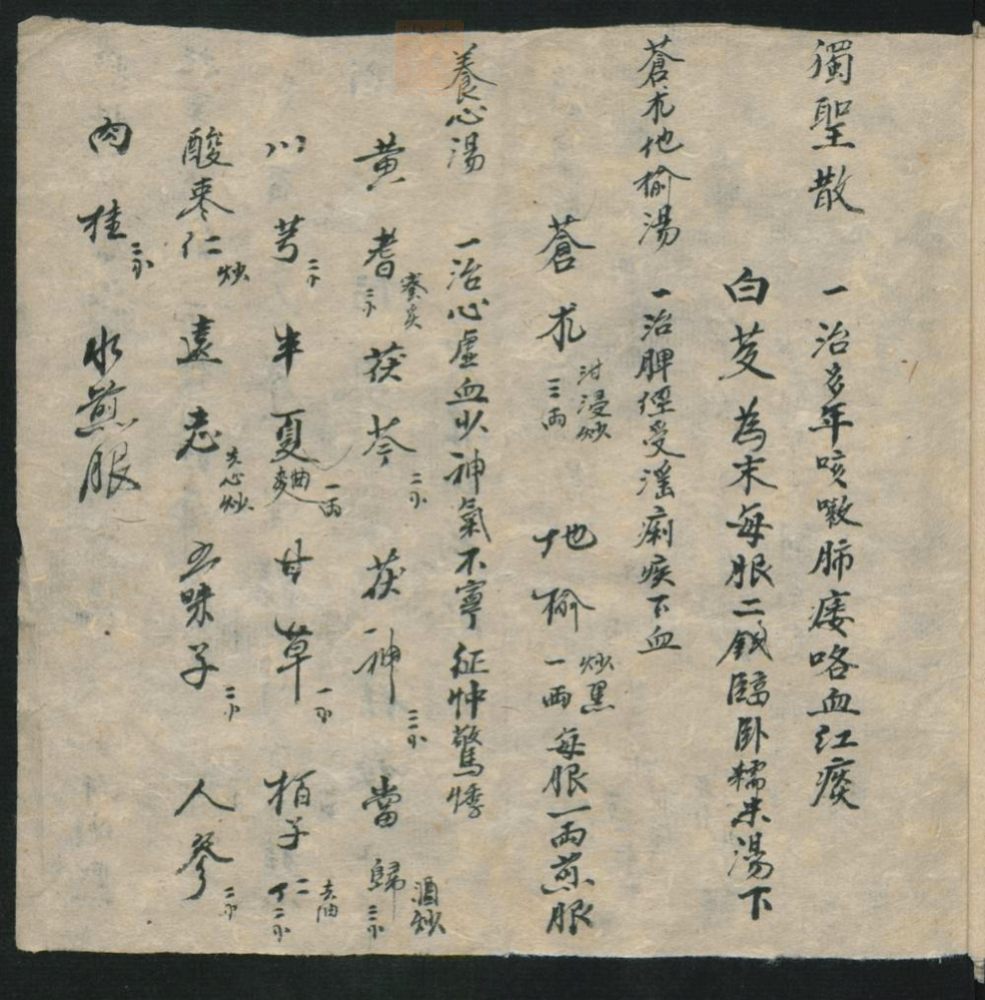 獨聖散　一治多年咳嗽肺痿咯血红痰
白芨為末每服二錢臨卧糯米湯下
蒼朮地榆湯　一治脾經受濕痢疾下血
蒼朮三兩泔浸炒　地榆一兩炒黑　每服一兩煎服
養心湯　一治心虛血少神氣不寧怔忡驚悸
黄耆二分　茯苓二分　茯神三分　當歸三分酒炒
川芎二分　半夏麯一兩　甘草一分　栢子仁二分去油
酸枣仁炒　遠志去心炒　五味子二分　人參二分
肉桂二分　水煎服